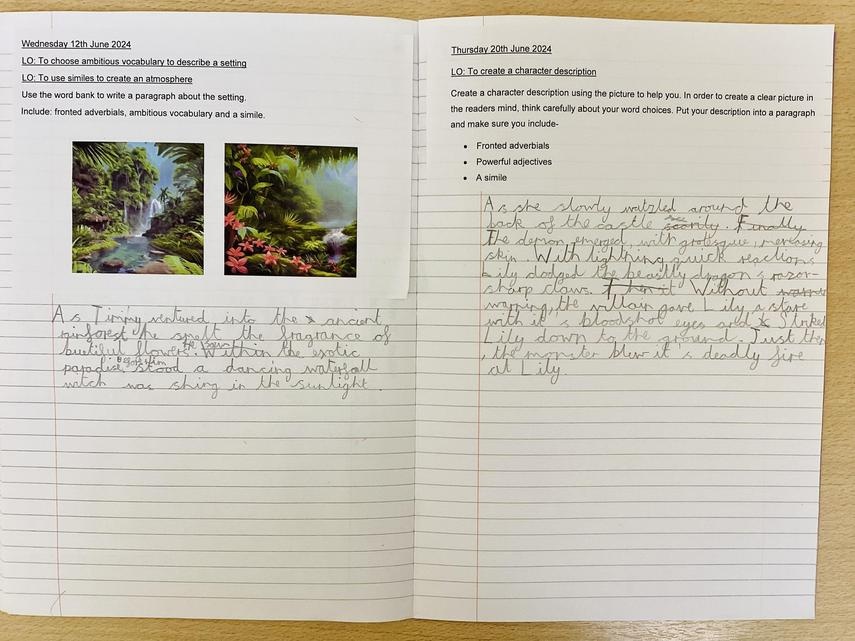 Wednesday 12th June 2024
LO: To choose ambitious vocabulary to describe a setting
LO: To use similes to create an atmosphere
Use the word bank to write a paragraph about the setting.
Include: fronted adverbials, ambitious vocabulary and a simile.
As Timmy ventured into the ancient
rinforest he smelt the fragrance of
beutiful flowers. Within the exotic
paradise, stood a dancing waterfall
witch was shing in the sunlight.
Thursday 20th June 2024
LO: To create a character description
Create a character description using the picture to help you. In order to create a clear picture in
the readers mind, think carefully about your word choices. Put your description into a paragraph
and make sure you include-
• Fronted adverbials
• Powerful adjectives
• A simile
As she slowly watzled around the
back of the castle scarily. Finally
The demon emerged, with grotesque,
skin. With lightning quick reactions
Lily dodged the beastly dragon's razor-
sharp claws. Then it Without
warning, the villain gave Lily a stare
with it's bloodshot eyes and Striked
Lily down to the ground. Just then
, the monster blew it's deadly fire
at Lily.